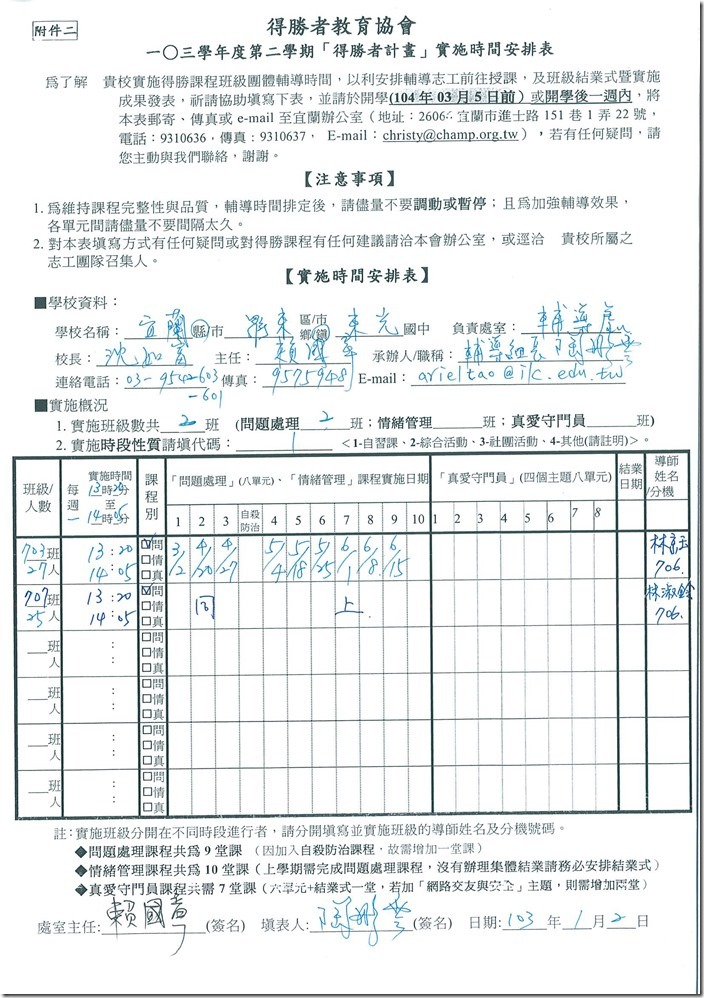 附件二
得勝者教育協會
一〇三學年度第二學期「得勝者計畫」實施時間安排表
為了解 貴校實施得勝課程班級團體輔導時間，以利安排輔導志工前往授課，及班級結業式暨實施
成果發表，祈請協助填寫下表，並請於開學(104 年 03 月 5 日前) 或開學後一週內，將
本表郵寄、傳真或 e-mail 至宜蘭辦公室（地址：2606 宜蘭市進士路 151 巷 1 弄 22 號，
電話：9310636，傳真：9310637， E-mail：christy@champ.org.tw），若有任何疑問，請
您主動與我們聯絡，謝謝。
【注意事項】
1. 為維持課程完整性與品質，輔導時間排定後，請儘量不要調動或暫停；且為加強輔導效果，
各單元間請儘量不要間隔太久。
2. 對本表填寫方式有任何疑問或對得勝課程有任何建議請洽本會辦公室，或逕洽 貴校所屬之
志工團隊召集人。
【實施時間安排表】
■學校資料：
學校名稱：宜蘭 縣/市 羅東 區/市 鄉/鎮 東光 國中 負責處室：輔導處
校長：沈如富 主任：賴國 承辦人/職稱：輔導組長
連絡電話：03-9542603 傳真：9575948 E-mail：arieltao@ilc.edu.tw
-601
■實施概況
1. 實施班級數共 2 班 (問題處理 2 班；情緒管理 班；真愛守門員 班)
2. 實施時段性質請填代碼： 1 <1-自習課、2-綜合活動、3-社團活動、4-其他(請註明)>。
班級/人數 每週一 實施時間 13時20分 至 14時05分 課程別 「問題處理」(八單元)、「情緒管理」課程實施日期 「真愛守門員」(四個主題八單元) 結業日期 導師姓名/分機
1 2 3 自殺防治 4 5 6 7 8 9 10 1 2 3 4 5 6 7 8
703班 13:20 ☑問 3/2 4/20 4/27 5/4 5/18 5/25 6/1 6/8 6/15
27人 14:05 □情 □真 706
707班 13:20 ☑問 同 上 林淑鈴
25人 14:05 □情 □真 706
班 : □問
人 : □情 □真
班 : □問
人 : □情 □真
班 : □問
人 : □情 □真
班 : □問
人 : □情 □真
註：實施班級分開在不同時段進行者，請分開填寫並實施班級的導師姓名及分機號碼。
◆問題處理課程共為 9 堂課 （因加入自殺防治課程，故需增加一堂課）
◆情緒管理課程共為 10 堂課（上學期需完成問題處理課程，沒有辦理集體結業請務必安排結業式）
◆真愛守門員課程共需 7 堂課（六單元+結業式一堂，若加「網路交友與安全」主題，則需增加兩堂）
處室主任：賴國 (簽名) 填表人： (簽名) 日期：103 年 1 月 2 日